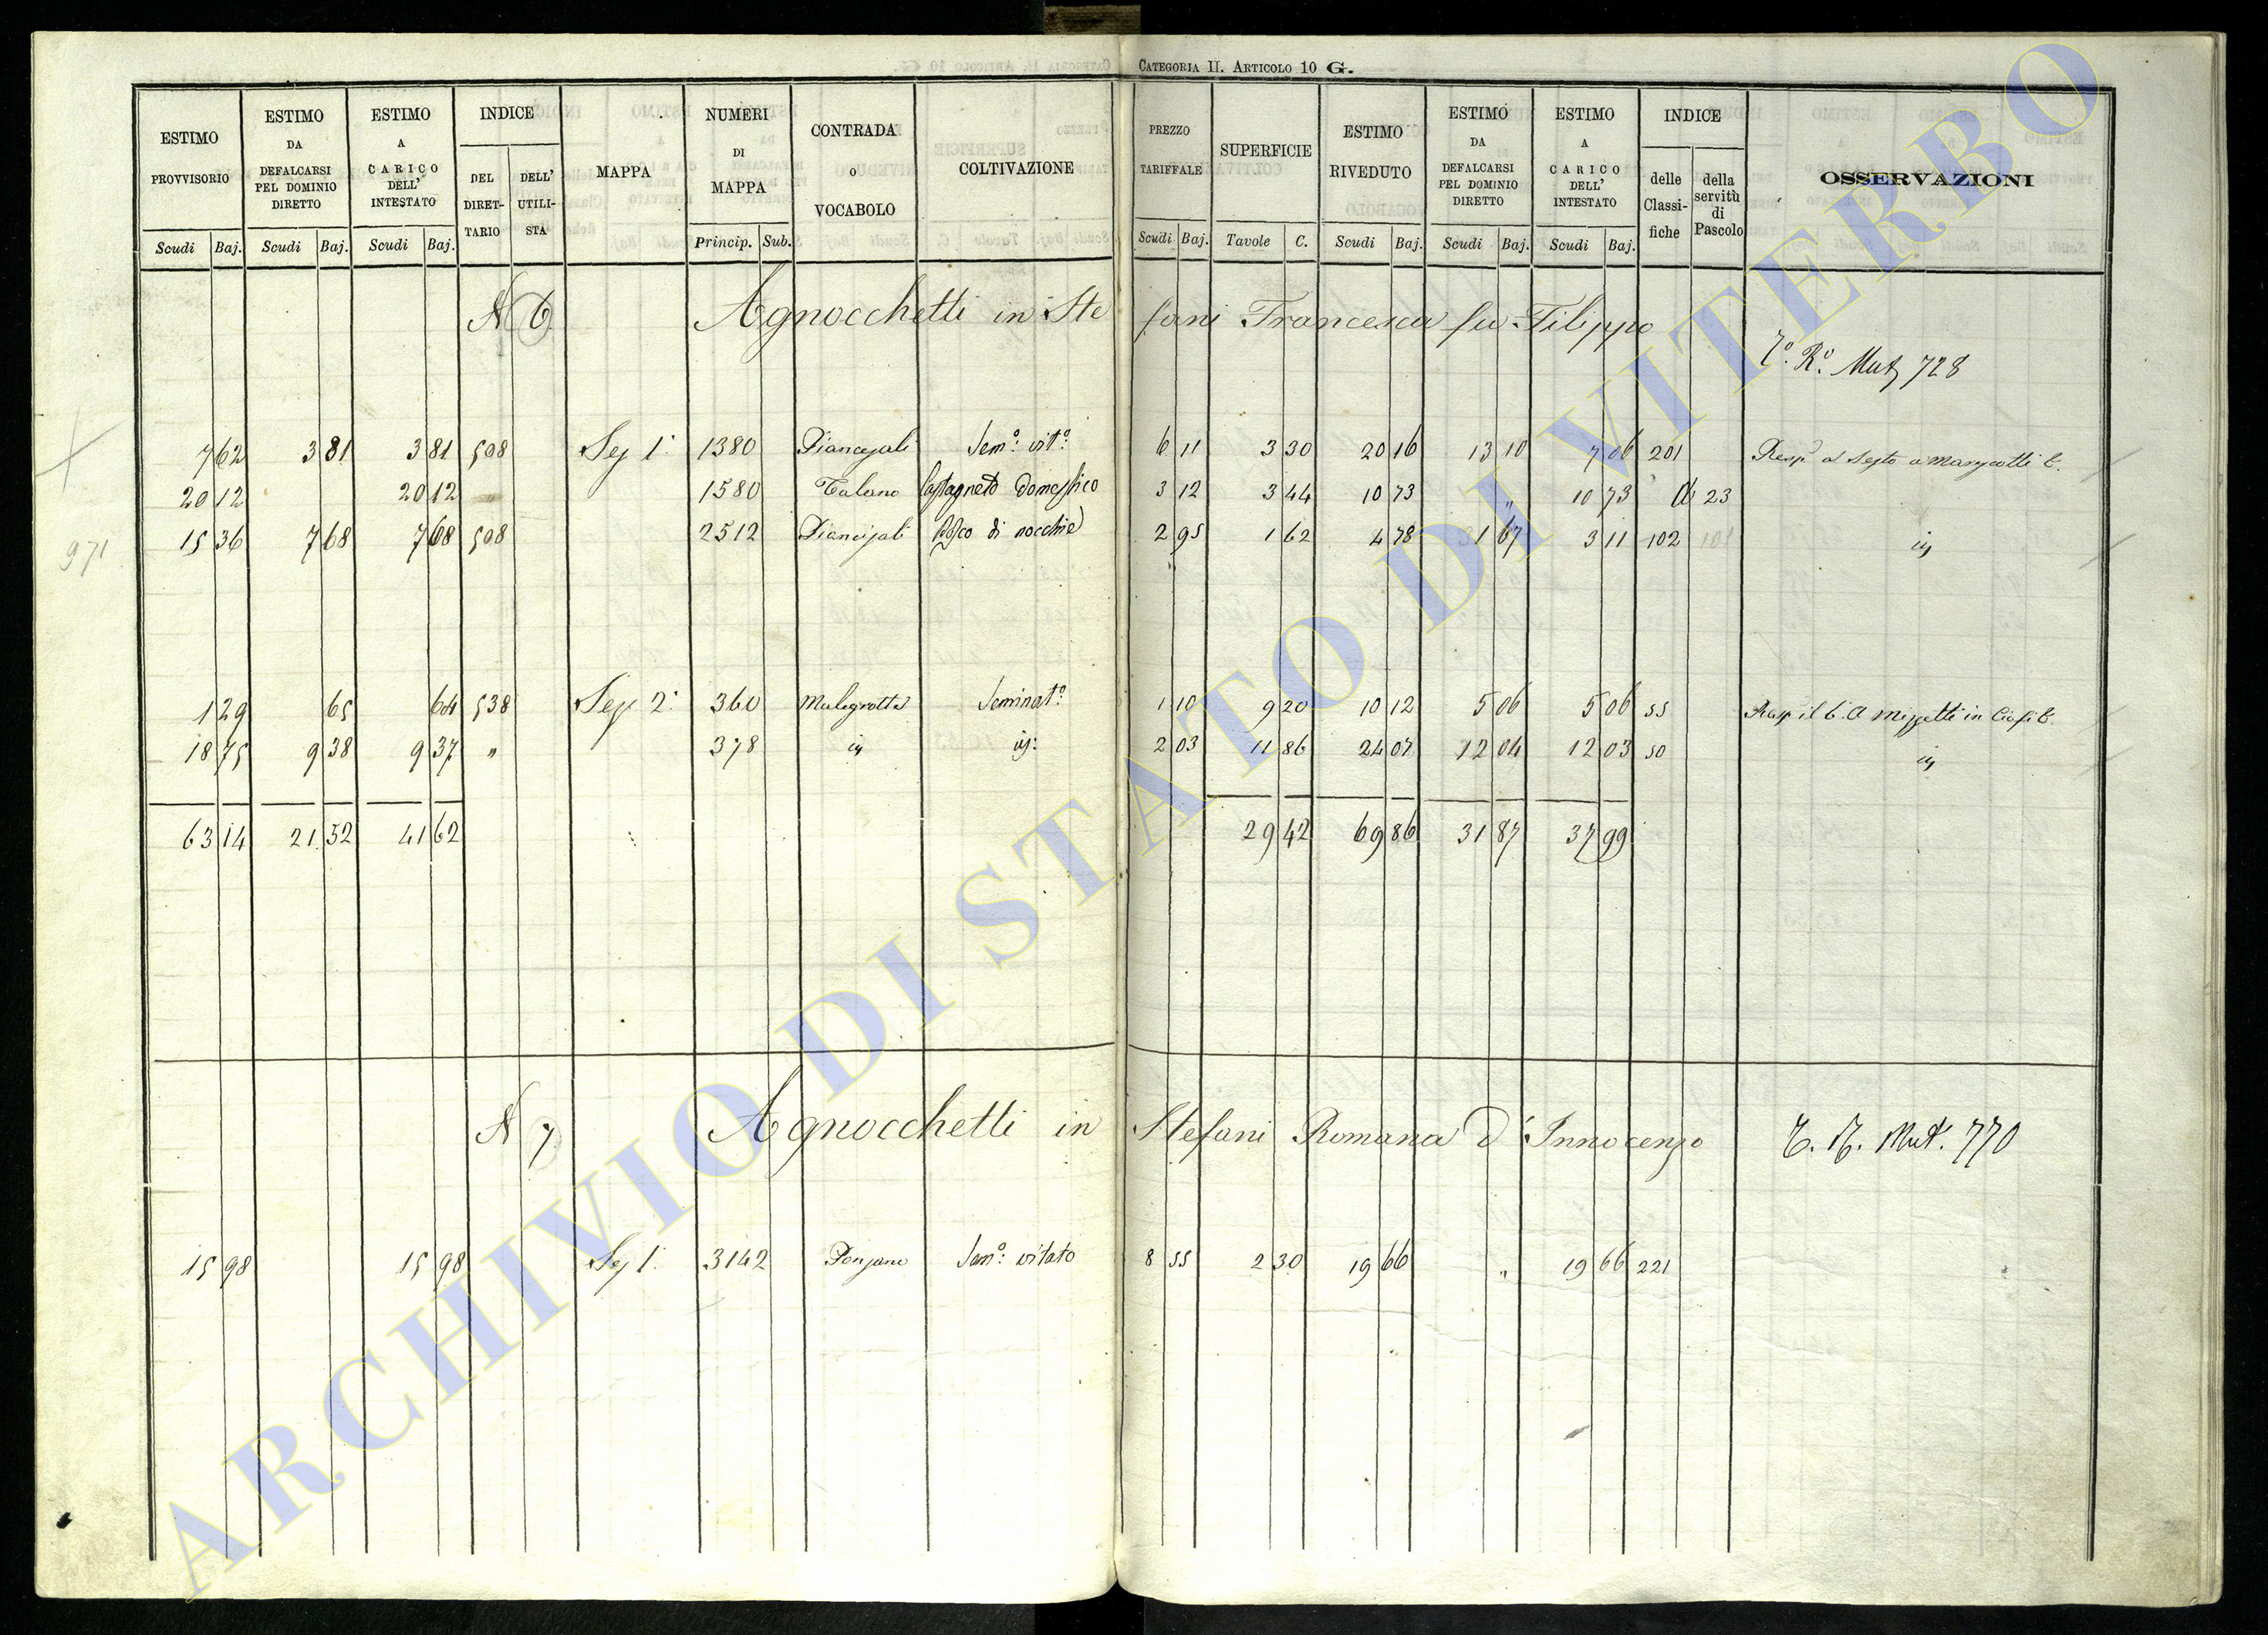 CATEGORIA II. ARTICOLO 10 G.
ESTIMO PROVVISORIO
ESTIMO DA DEFALCARSI PEL DOMINIO DIRETTO
ESTIMO A CARICO DELL' INTESTATO
INDICE
DEL DIRET-TARIO
DELL' UTILI-STA
MAPPA
NUMERI DI MAPPA
CONTRADA O VOCABOLO
COLTIVAZIONE
PREZZO TARIFFALE
SUPERFICIE
ESTIMO RIVEDUTO
ESTIMO DA DEFALCARSI PEL DOMINIO DIRETTO
ESTIMO A CARICO DELL' INTESTATO
INDICE
delle Classi-fiche
della servitù di Pascolo
OSSERVAZIONI
Scudi Baj. Scudi Baj. Scudi Baj. Princip. Sub. Scudi Baj. Tavole C. Scudi Baj. Scudi Baj. Scudi Baj.
N 6 Agnocchetti in Ste fani Francesca fu Filippo
Rº. Mut 728
7 62 3 81 3 81 508 Sez 1ª 1380 Semº: vitº: 6 11 3 30 20 16 13 10 7 06 201
20 12 20 12 1580 Castagneto Domestico 3 12 3 44 10 73 " 10 73 23
971 15 36 7 68 7 68 508 2512 Bosco di nocchie 2 95 1 62 4 78 1 67 3 11 102
1 29 65 64 538 Sez 2ª 360 Malegrotte Seminatº: 1 10 9 20 10 12 5 06 5 06 55
18 75 9 38 9 37 " 378 2 03 11 86 24 07 12 04 12 03 50
63 14 21 52 41 62 29 42 69 86 31 87 37 99
N 7 Agnocchetti in Stefani Romana d'Innocenzo Mut. 770
15 98 15 98 Sez 1ª 3142 Semº: vitato 8 55 2 30 19 66 " 19 66 221
ARCHIVIO DI STATO DI VITERBO